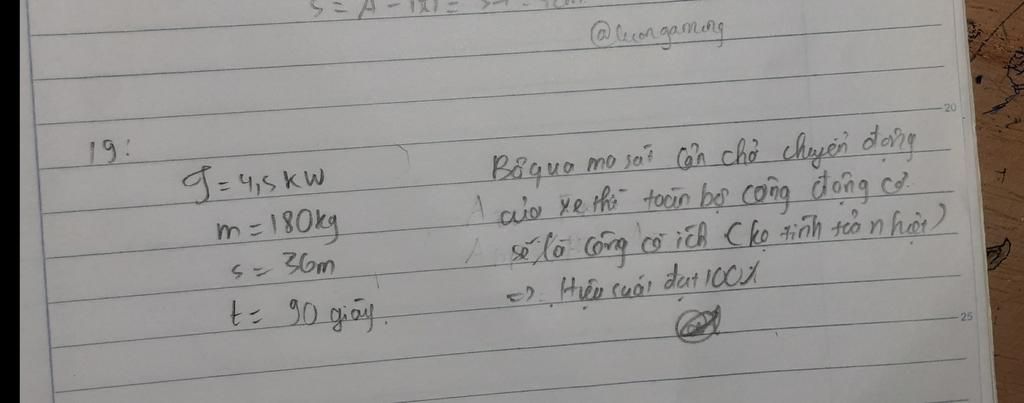 S = A - |x| =
@luongaming
20
19:
P = 4,5 kW
m = 180kg
s = 36m
t = 90 giây.
Bỏ qua ma sát cản chở chuyển động
của xe thì toàn bộ công động cơ
sẽ là công có ích (ko tính toả nhiệt)
=> Hiệu suất đạt 100%
25